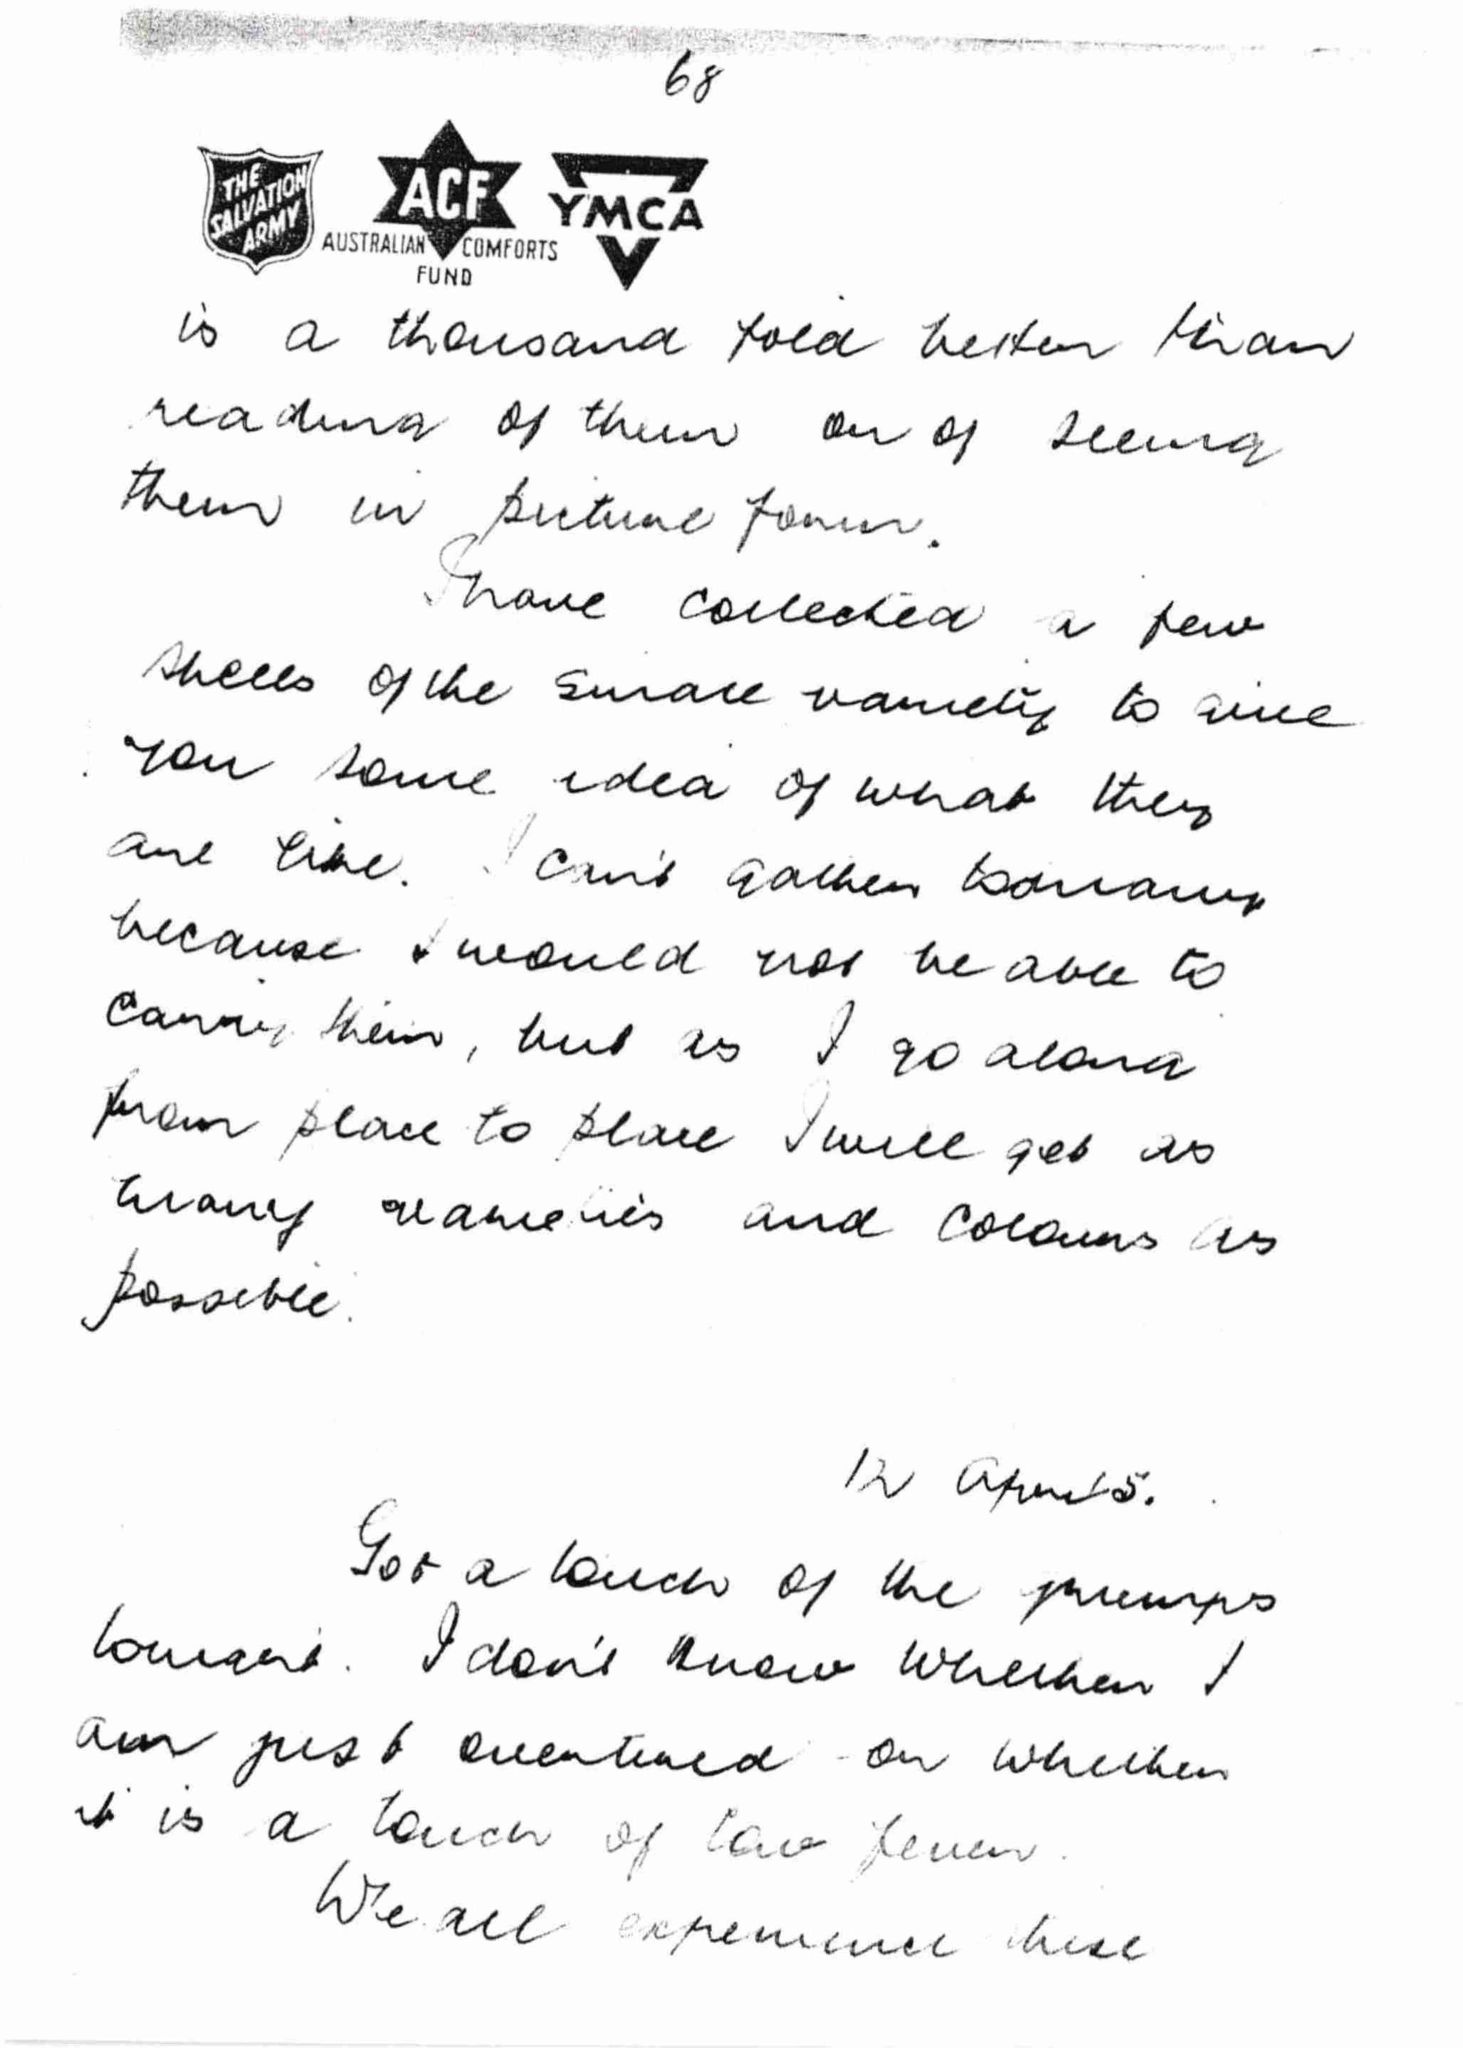 68
THE
SALVATION
ARMY
ACF
AUSTRALIAN COMFORTS
FUND
YMCA
is a thousand fold better than
reading of them or of seeing
them in picture form.
I have collected a few
shells of the small variety to give
you some idea of what they
are like. I can't gather too many
because I would not be able to
carry them, but as I go along
from place to place I will get as
many varieties and colours as
possible.
12 April 5.
Got a touch of the grumps
tonight. I don't know whether I
am just overtired or whether
it is a touch of low fever.
We all experience these